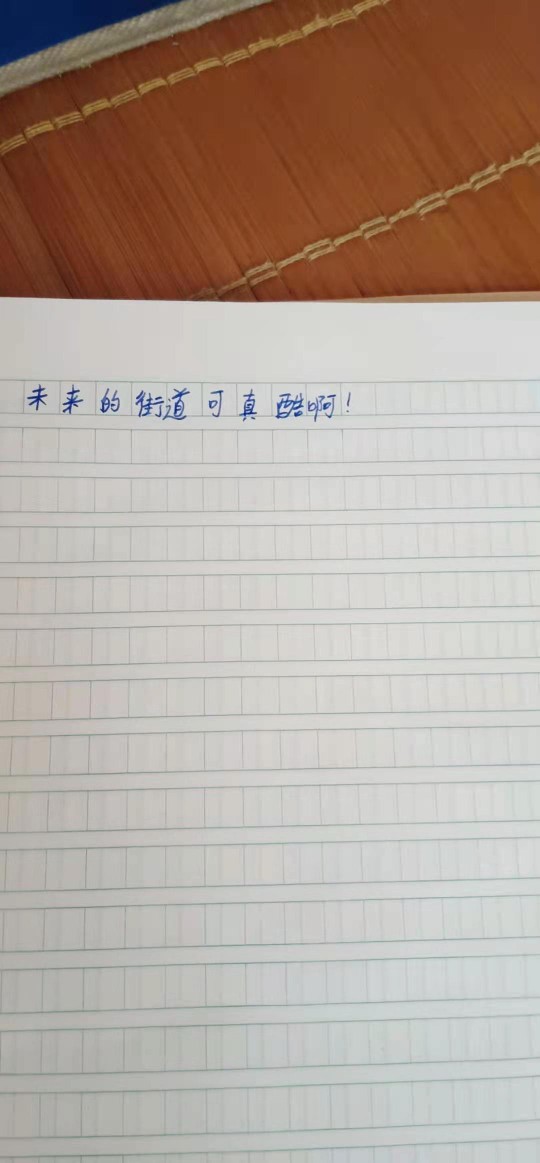 未来的街道可真酷啊！